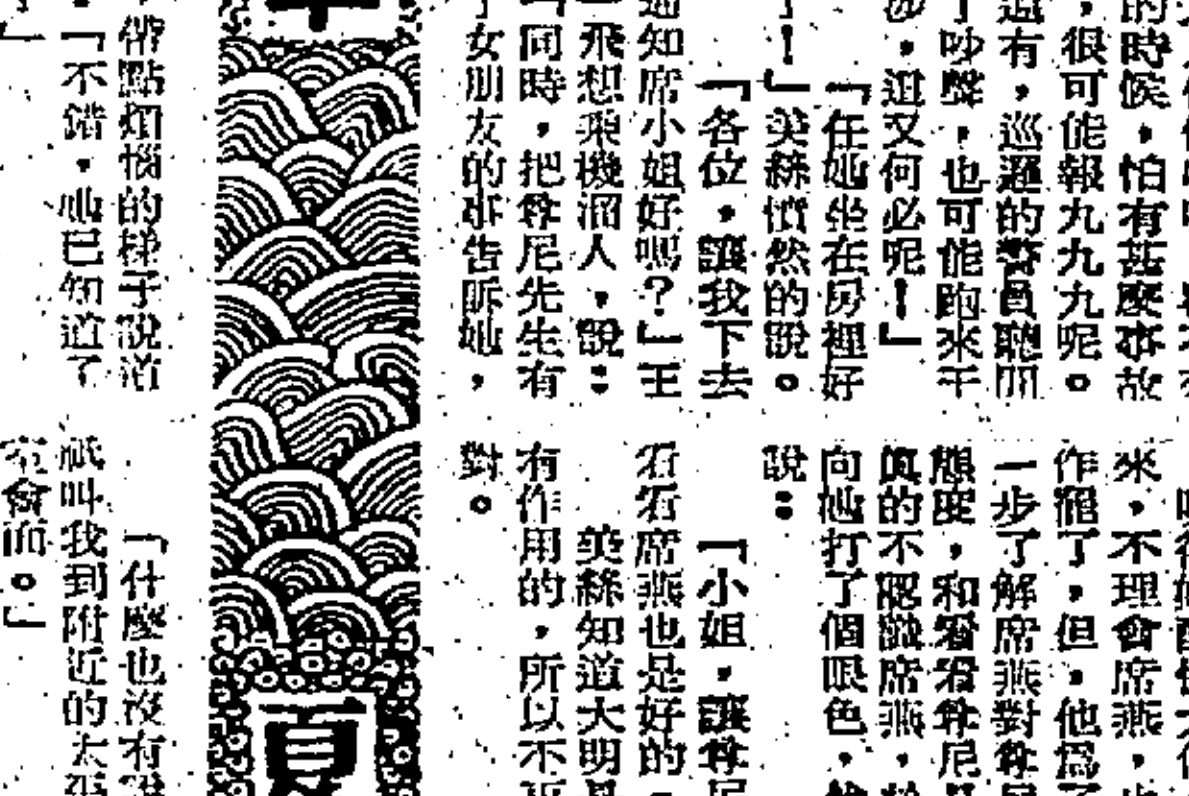 的時候，怕有甚麼事故
，很可能報九九九呢。
還有，巡邏的警員聽聞
了吵聲，也可能跑來干
涉，這又何必呢！」
「任她坐在房裡好
了！」美絲憤然的說。
「各位，讓我下去
通知席小姐好嗎？」王
一飛想乘機溜人，說：
「同時，把尊尼先生有
了女朋友的事告訴她，
來，不理會席燕，
作罷了，但，他爲了
一步了解席燕對尊尼
態度，和看看尊尼
眞的不認識席燕，
向她打了個眼色，
說：
「小姐，讓尊尼
看看席燕也是好的。
美絲知道大明是
有作用的，所以不再
對。
夏
帶點煩惱的樣子說道
「不錯，她已知道了
「什麼也沒有說
祇叫我到附近的太平
室會面。」